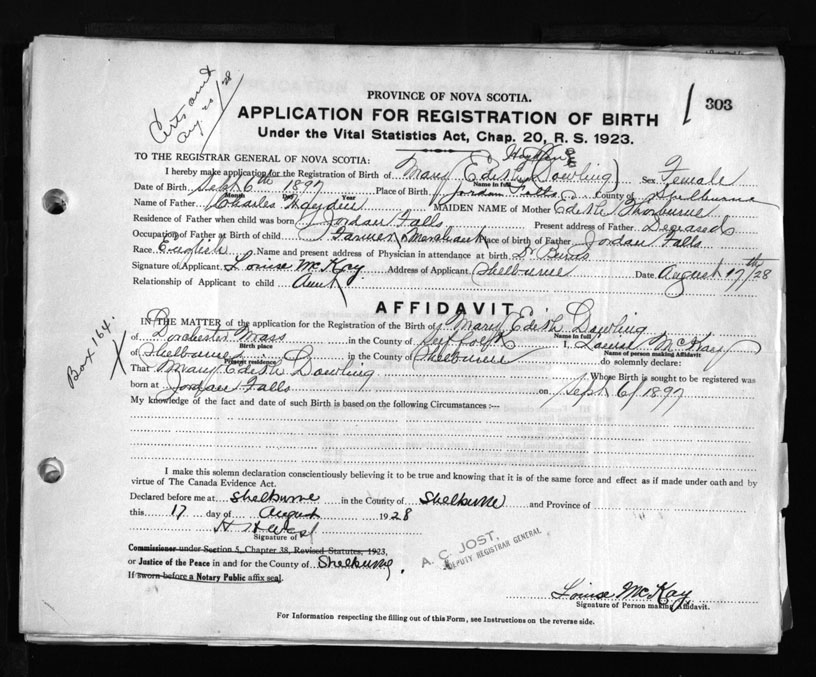 Certs and
Aug 20/28
303
PROVINCE OF NOVA SCOTIA.
APPLICATION FOR REGISTRATION OF BIRTH
Under the Vital Statistics Act, Chap. 20, R. S. 1923.
TO THE REGISTRAR GENERAL OF NOVA SCOTIA:
Hayden
I hereby make application for the Registration of Birth of Mary (Edith Dowling) Sex Female
Name in full
Date of Birth Sept 6th 1897 Place of Birth Jordan Falls County of Shelburne
Month Day Year
Name of Father Charles Hayden MAIDEN NAME of Mother Edith Thorburne
Residence of Father when child was born Jordan Falls Present address of Father Degrands
Occupation of Father at Birth of child Farmer & Merchant Place of birth of Father Jordan Falls
Race English Name and present address of Physician in attendance at birth Dr Burns
Signature of Applicant Louise McKay Address of Applicant Shelburne Date August 17th/28
Relationship of Applicant to child Aunt
AFFIDAVIT
IN THE MATTER of the application for the Registration of the Birth of Mary Edith Dowling
Name in full
of Dorchester Mass in the County of Suffolk I, Louise McKay
Birth place Name of person making Affidavit
of Shelburne in the County of Shelburne do solemnly declare:
Present residence
That Mary Edith Dowling Whose Birth is sought to be registered was
born at Jordan Falls on Sept 6/1897
My knowledge of the fact and date of such Birth is based on the following Circumstances :—
Box 164.
X
I make this solemn declaration conscientiously believing it to be true and knowing that it is of the same force and effect as if made under oath and by
virtue of The Canada Evidence Act.
Declared before me at Shelburne in the County of Shelburne and Province of
this 17 day of August 1928
H H West
Signature of
Commissioner under Section 5, Chapter 38, Revised Statutes, 1923,
or Justice of the Peace in and for the County of Shelburne.
If sworn before a Notary Public affix seal.
A. C. JOST,
DEPUTY REGISTRAR GENERAL
Louise McKay
Signature of Person making Affidavit.
For Information respecting the filling out of this Form, see Instructions on the reverse side.